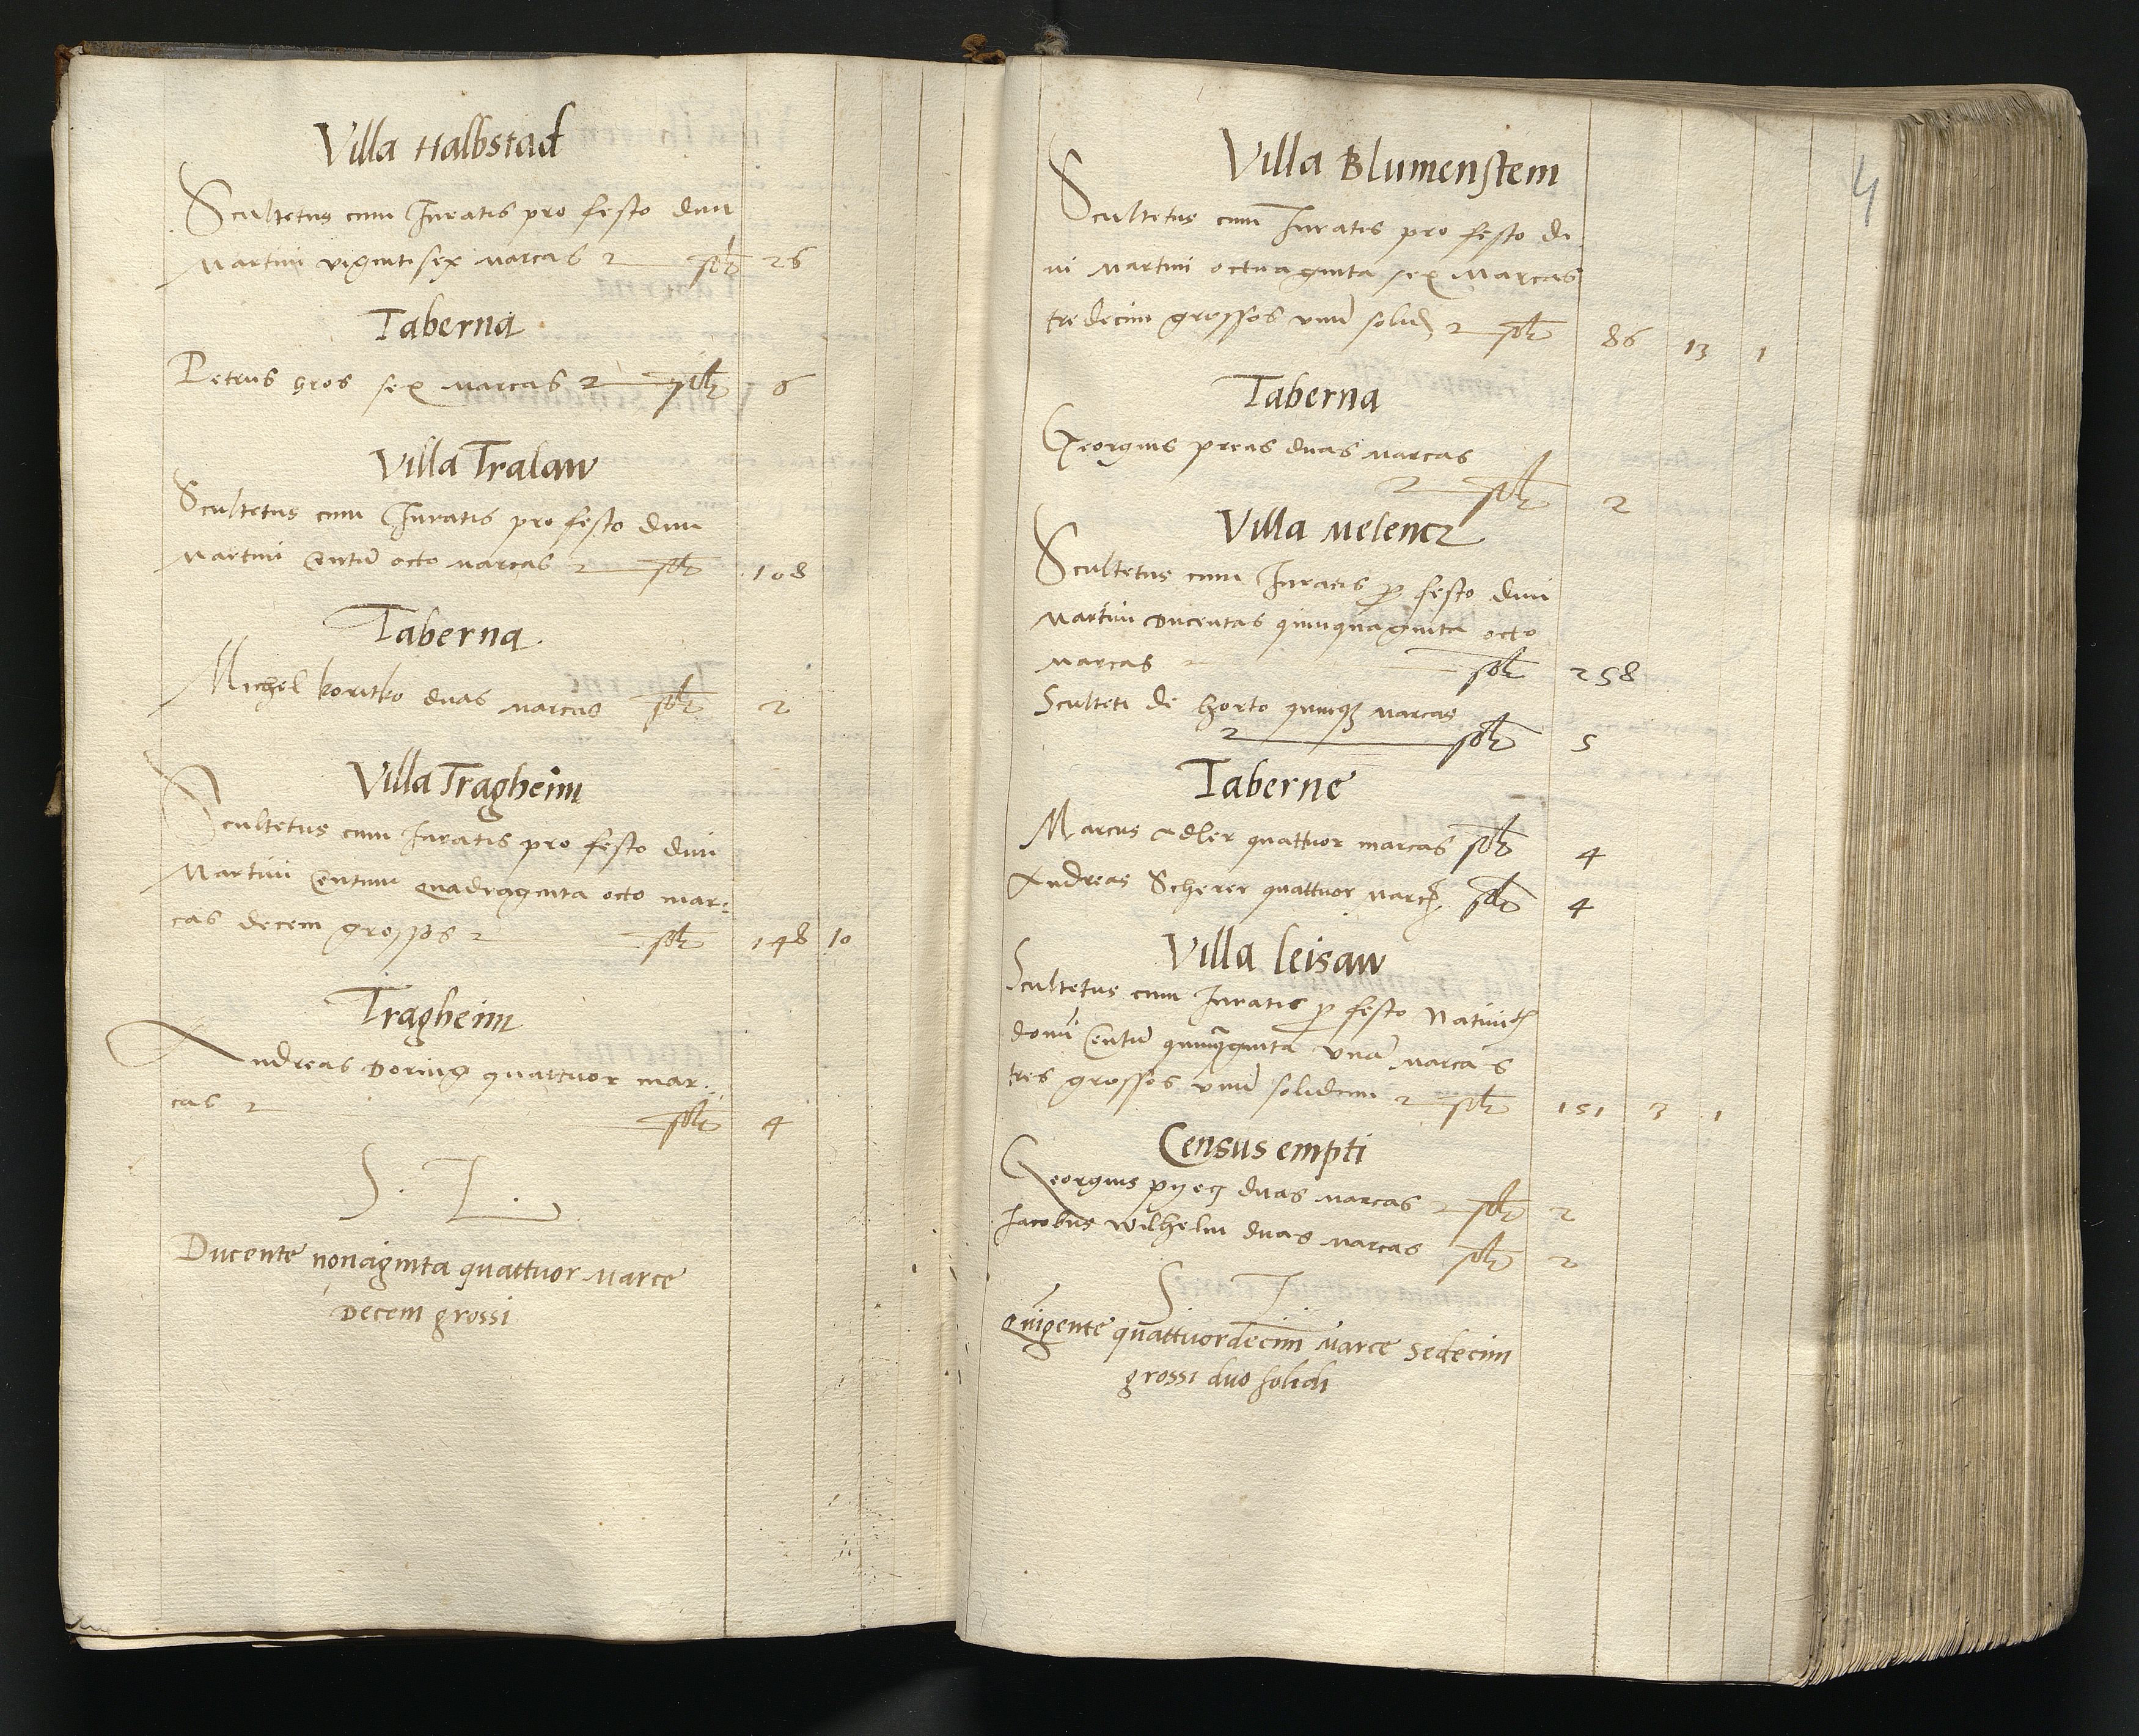 Villa Halbstad
Scultetus cum Iuratis pro festo divi
Martini vigintisex marcas solt 26
Taberna
Petrus gros sex marcas solt 6
Villa Tralaw
Scultetus cum Iuratis pro festo divi
Martini Centu octo marcas solt 108
Taberna
Michel koritko duas marcas solt 2
Villa Tragheim
Scultetus cum Iuratis pro festo divi
Martini Centum quadraginta octo mar:
cas decem grossos solt 148 10
Tragheim
Andreas Doring quattuor mar:
cas solt 4
S. L.
Ducente nonaginta quattuor marce
Decem grossi
4
Villa Blumenstein
Scultetus cum Iuratis pro festo di
vi Martini octuaginta sex Marcas
tredecim grossos unu solid solt 86 13 1
Taberna
Georgius preas duas marcas
solt 2
Villa Melencz
Scultetus cum Iuratis p festo divi
Martini Ducentas quinquaginta octo
marcas solt 258
Sculteti de horto quinq marcas
solt 5
Taberne
Marcus Adler quattuor marcas solt 4
Andreas Scherer quattuor marc solt 4
Villa leisaw
Scultetus cum Iuratis p festo Nativi
domi Centu quinqginta una marcas
tres grossos unu solidum solt 151 3 1
Census empti
Georgius duas marcas solt 2
Jacobus Wilhelm duas marcas solt 2
S L
Quigente quattuordecim marce sedecim
grossi duo solidi